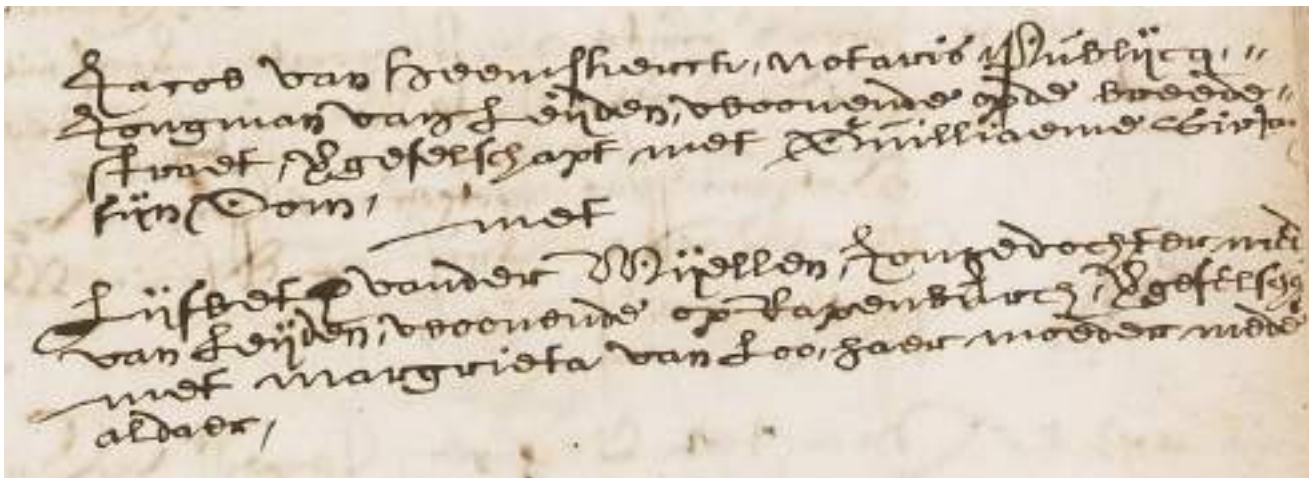 Jacob van heemskerck, notaris Publijcq,
Jongman van Leijden, woonende op de breede
straet, Vgeselschapt met Guilliaeme
sijn Oom,
met
Lijsbet vander Wijellen, Jongedochter mede
van Leijden, woonende op Rapenburch, Vgeselscht
met margrieta van Loo, haer moeder mede
aldaer,